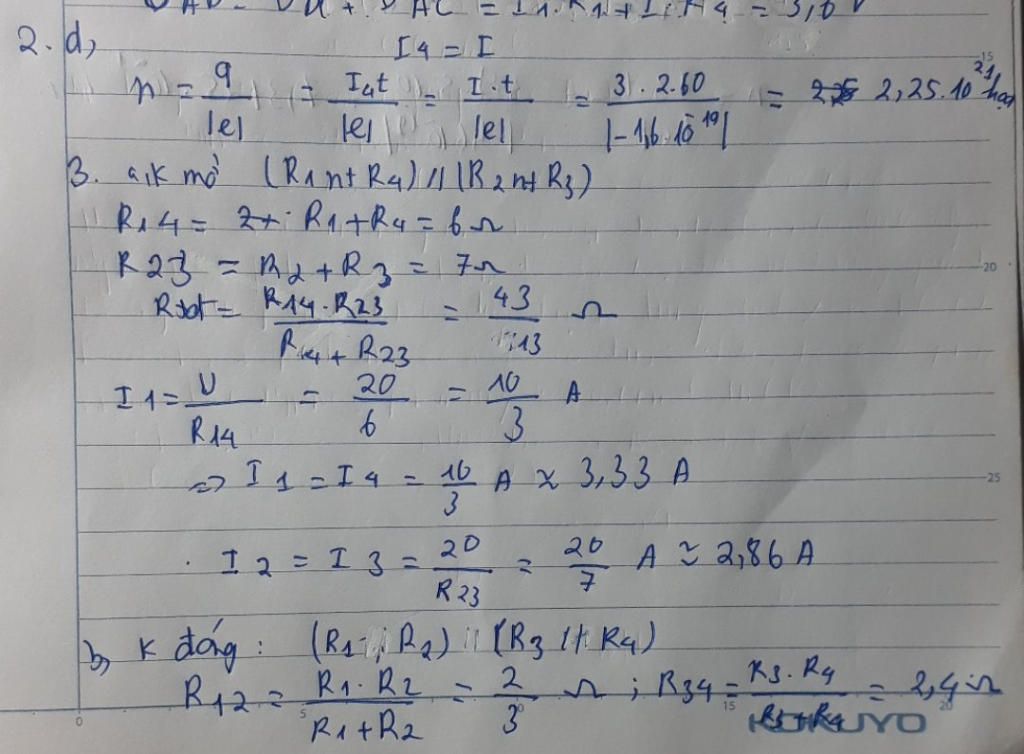 U AB = U R + U AC = I1.R1 + I.R4 = 3,6 V
2. d, I4 = I
n = q/|e| = I4t/|e| = I.t/|e| = 3.2.60/|-1,6.10^-19| = 2,25.10^21 hạt
3. a, K mở (R1 nt R4) // (R2 nt R3)
R14 = R1 + R4 = 6Ω
R23 = R2 + R3 = 7Ω
Rtot = R14.R23/R14 + R23 = 43/13 Ω
I1 = U/R14 = 20/6 = 10/3 A
=> I1 = I4 = 10/3 A ≈ 3,33 A
. I2 = I3 = 20/R23 = 20/7 A ≈ 2,86 A
b, K đóng : (R1 // R2) (R3 // R4)
R12 = R1.R2/R1 + R2 = 2/3 Ω ; R34 = R3.R4/R3 + R4 = 2,4 Ω
KOKUYO
15
20
25
0
5
15
20